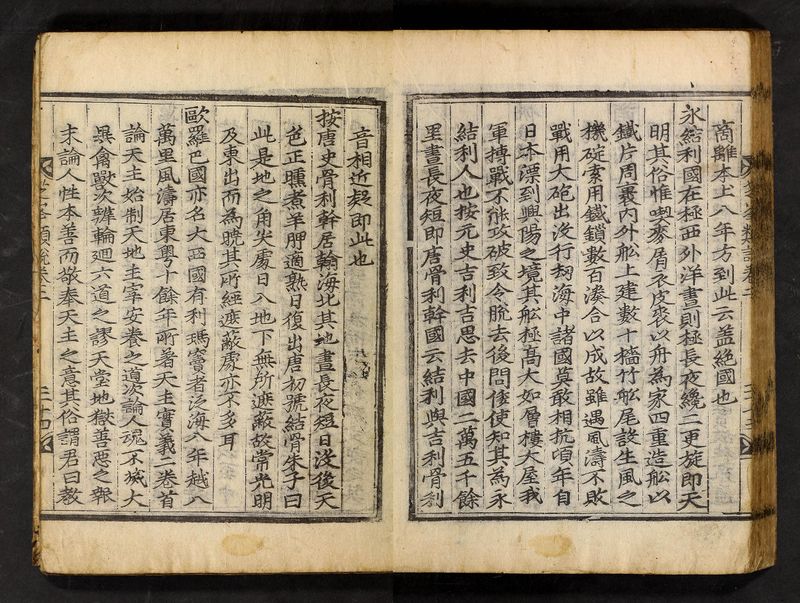 芝峯類說卷二
商離本土八年方到此云盖絶國也
永結利國在極西外洋晝則極長夜纔二更旋即天
明其俗惟喫麥屑衣皮裘以舟為家四重造舩以
鐵片周裹內外舩上建數十檣竹舩尾設生風之
機碇索用鐵鎖數百湊合以成故雖遇風濤不敗
戰用大砲出沒行刼海中諸國莫敢相抗頃年自
日本漂到興陽之境其舩極高大如層樓大屋我
軍搏戰不能攻破致令脫去後問倭使知其為永
結利人也按元史吉利吉思去中國二萬五千餘
里晝長夜短即唐骨利幹國云結利與吉利骨利
音相近疑即此也
按唐史骨利幹居瀚海北其地晝長夜短日沒後天
色正曛煮羊胛適熟日復出唐初號結骨朱子曰
此是地之角尖處日入地下無所遮蔽故常光明
及東出而為曉其所經遮蔽處亦不多耳
歐羅巴國亦名大西國有利瑪竇者泛海八年越八
萬里風濤居東粤十餘年所著天主實義二卷首
論天主始制天地主宰安養之道次論人魂不滅大
異禽獸次辯輪廻六道之謬天堂地獄善惡之報
末論人性本善而敬奉天主之意其俗謂君曰教
芝峯類說卷二 三十四